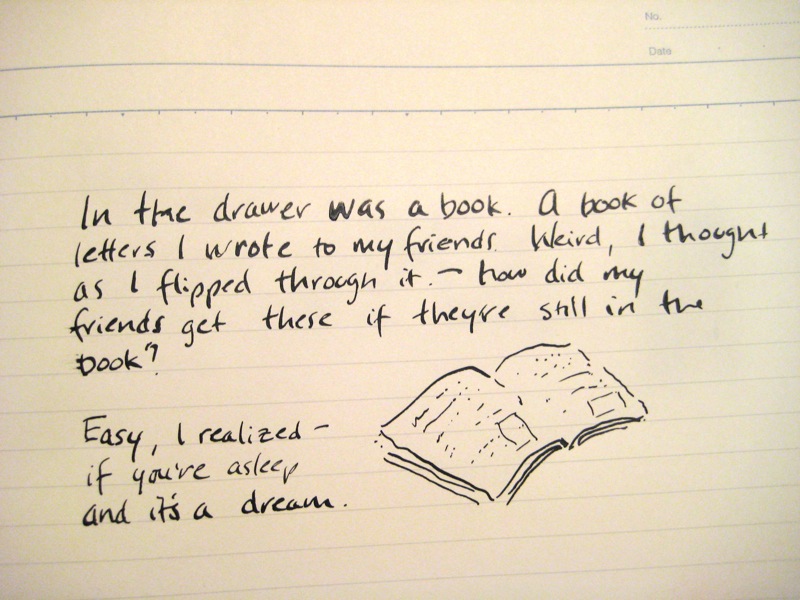 No.
Date
In the drawer was a book. A book of
letters I wrote to my friends. Weird, I thought
as I flipped through it. – how did my
friends get these if they're still in the
book?
Easy, I realized –
if you're asleep
and it's a dream.